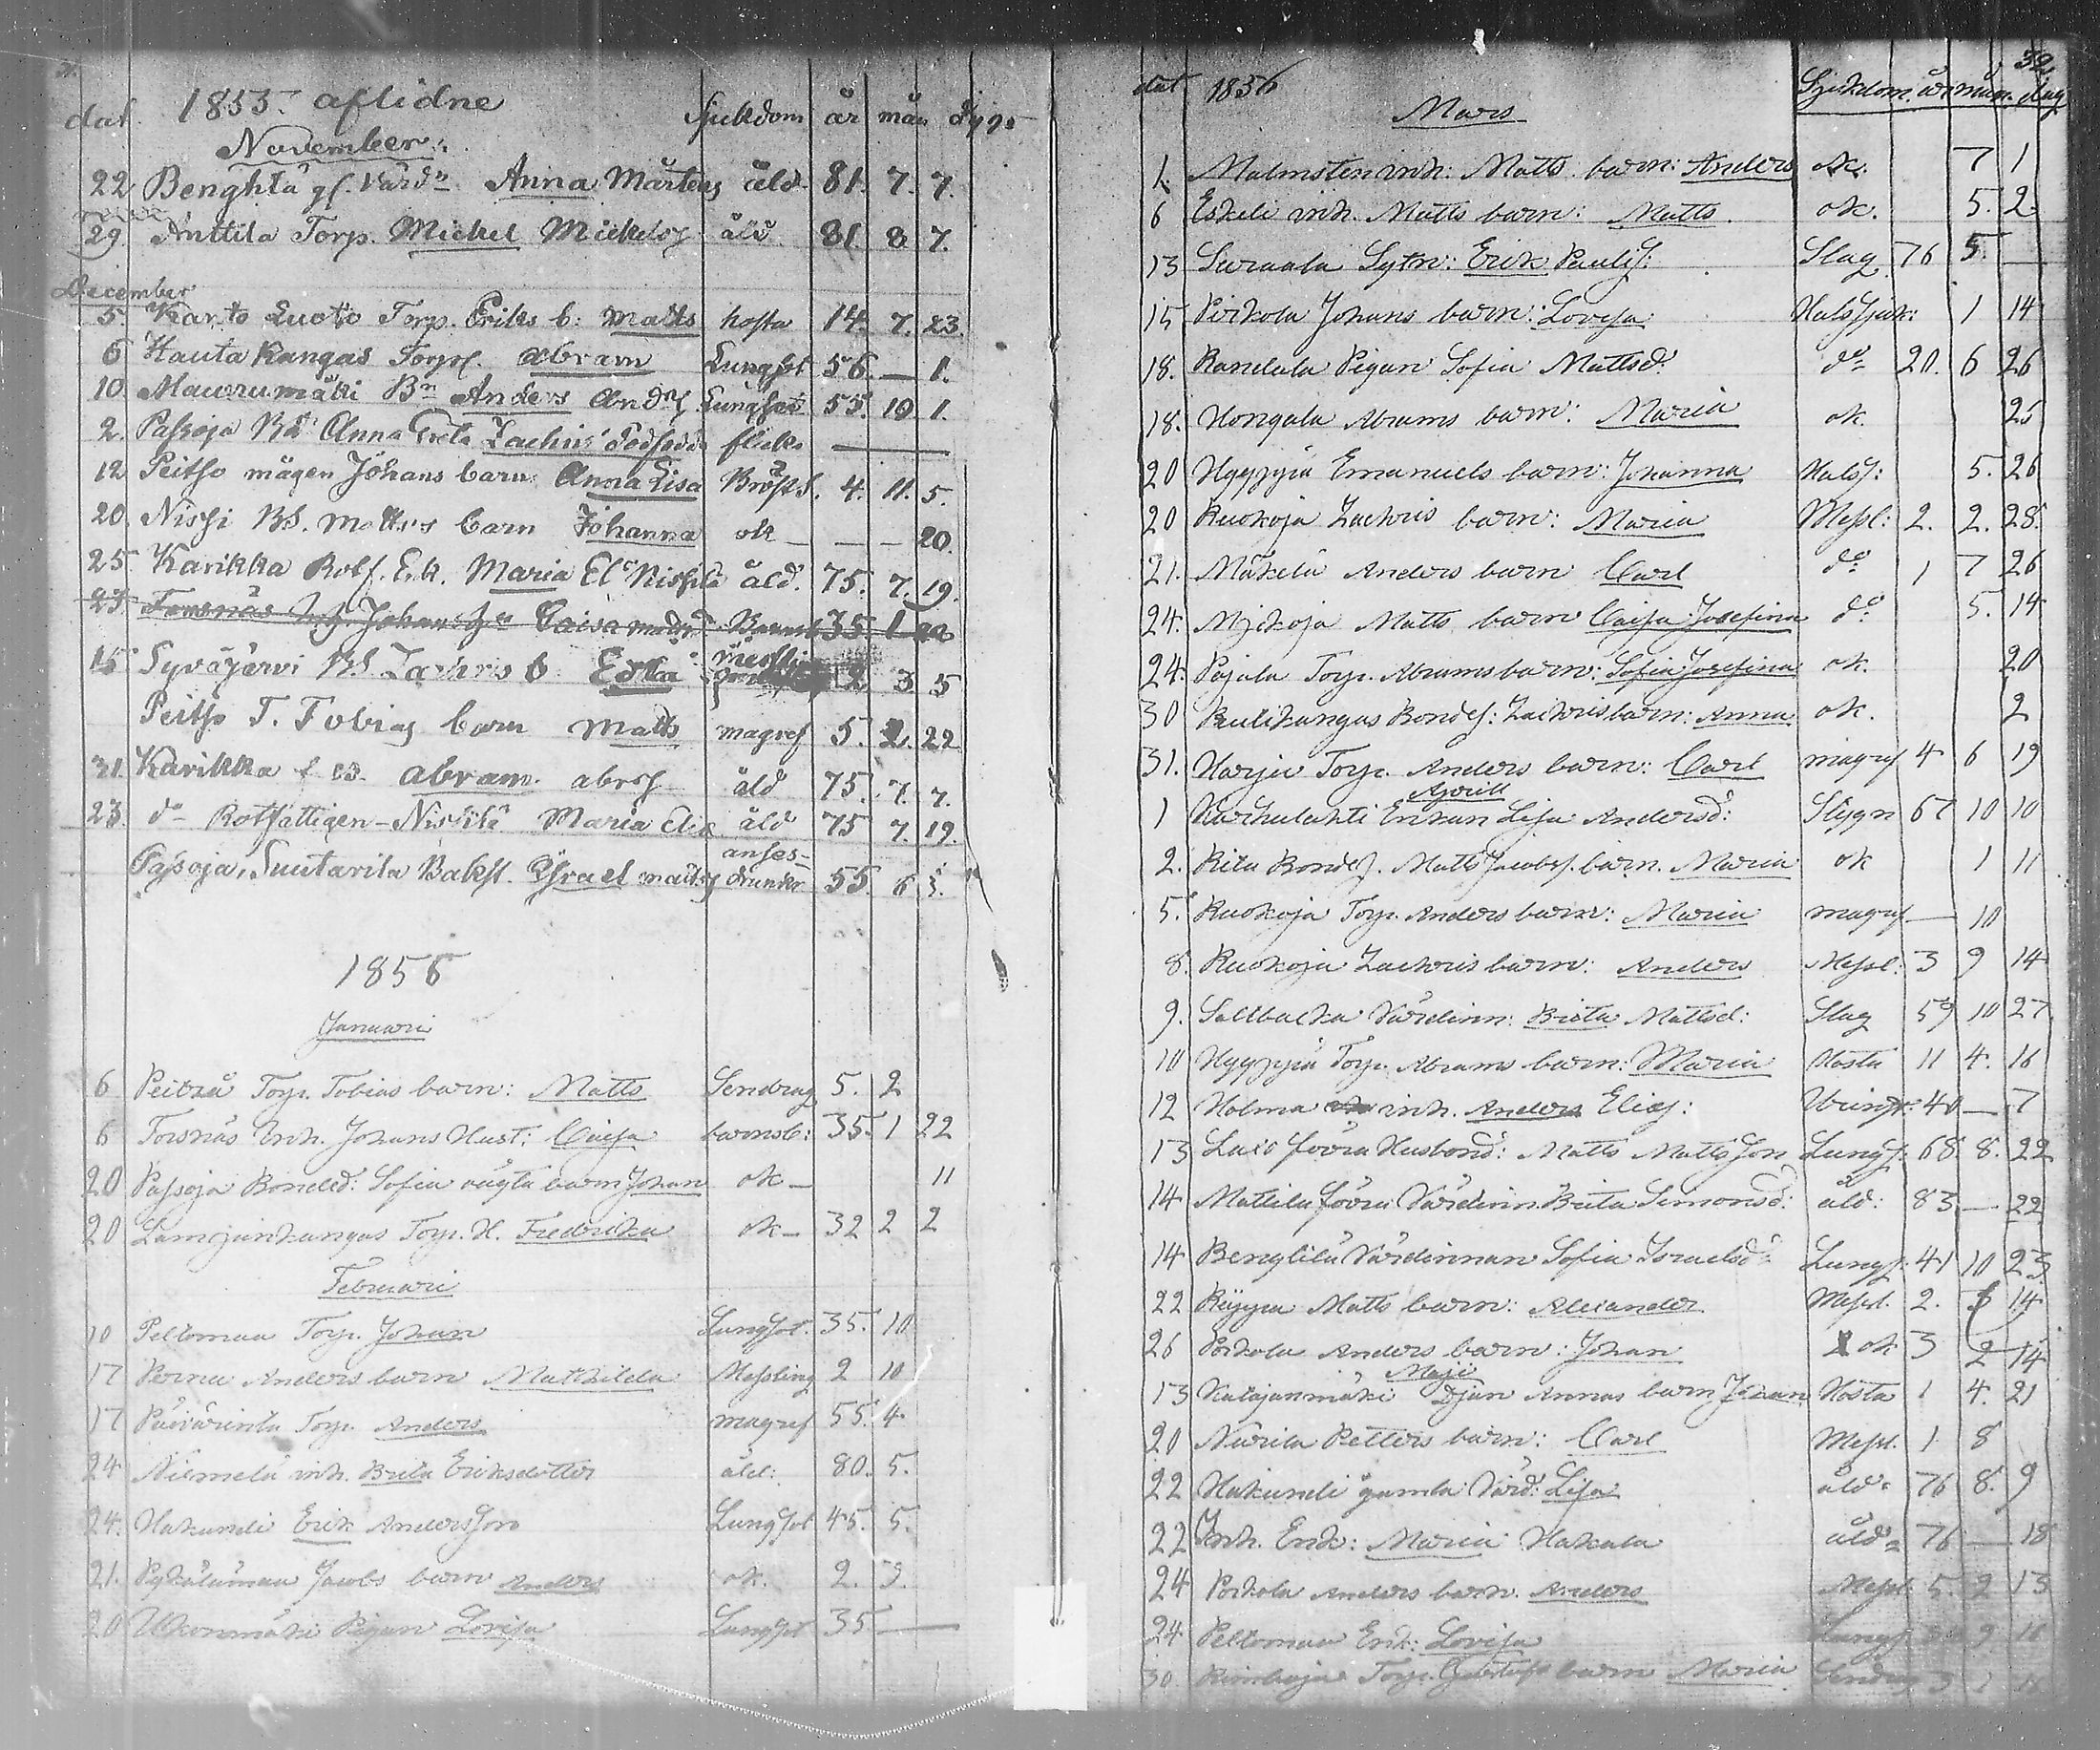 dat. 1855. aflidne Sjukdom år mån dygn
November.
22 Benghtä gl. Värdn Anna Mårtens åld 81. 7. 7.
29. Anttila Torp. Michel Mickels åld 81. 8 7.
December
5. Karto Luoto Torp. Eriks b: Matts hosta 14. 7. 23.
6 Hauta Kangas Torps. Abram Lungsot 56 — 1.
10. Maurumäki Bn Anders Andrs Lungsot 55. 10 1.
2. Passoja Bd Anna Greta Zachris dödfödda flicka —
12 Peitso mågen Johans barn Anna Lisa Bröst. 4. 11. 5.
20. Nissi Bd. Mattss barn Johanna ok — — — 20.
25 Karikka Rotf. Enk. Maria El. Nissilä åld. 75. 7. 19.
27. Forsnäs Johan Caisa 35 1 22
15 Syväjervi Bd. Zachris b Edla messling 2 3 5
Peitso T. Tobias barn Matts magref 5. 2. 22
31. Karikka Abram. Abrs åld 75. 7. 7.
23. do Rotfattigen Nissilä Maria Elis åld 75 7. 19.
Passoja, Suutarila Bakst. Israel Matts drunkn 55. 6 3.
1856
Januari
6 Peitzå Torp. Tobias barn: Matts Sendrag 5. 2
6 Torsnäs Inh. Johans Hust: Caisa barnsb: 35. 1 22
20 Passoja Bonded: Sofia oägta barn Johan ok — 11
20 Lampinkangas Torp. H. Fredrika ok — 32 2 2
Februari
10 Peltomaa Torp. Johan Lungsot. 35. 10
17 Pernu Anders barn Mathilda Messling 2 10
17 Päivärinta Torp. Anders magref 55. 4
24 Niemelä inh. Brita Eriksdotter åld: 80. 5.
24. Hakundi Erik Andersson Lungsot 45. 5.
21. Pykälämaa Jacobs barn Anders ok. 2. 3.
20 Ukonmäki Pigan Lovisa Lungsot 35 —
32.
dat 1856 Sjukdom. år mån. dag
Mars
1. Malmsten inh: Matts barn: Anders ok. 7 1
6 Eskeli inh. Matts barn: Matts. ok. 5. 2.
13 Suraala Sytn: Erik Paulis: Slag 76 5. —
15 Pirkola Johans barn: Lovisa Halssjuk: 1 14
18. Randala Pigan Sofia Mattsd: do 20. 6 26
18. Hongala Abrams barn: Maria ok. 25
20 Hyyppä Emanuels barn: Johanna Halss: 5. 26
20 Ruokoja Zachris barn: Maria Messl: 2. 2. 28.
21. Mäkelä Anders barn Carl do 1 7 26
24. Myckoja Matts barn Caisa Josefina do 5. 14
24. Pajala Torp. Abrams barn: Sofia Josefina ok. 20
30 Rutikangas Bondes: Zachris barn: Anna ok. 2
31. Harju Torp. Anders barn: Carl magref 4 6 19
Aprill
1 Karhulahti Enkan Lisa Andersd: Stygn 67 10 10
2. Rita Bondes. Matts Jacobs. barn. Maria ok 1 11
5. Ruokoja Torp. Anders barn: Maria magref — 10
8. Ruokoja Zachris barn: Anders Messl: 3 9 14
9. Saltbacka Värdinn: Brita Mattsd: Slag 59 10 27
10 Hyyppä Torp. Abrams barn: Maria Hosta 11 4. 16
12 Holma inh. Anders Elias: 40 — 7
13 Laxo förra Husbond: Matts Mattsson Lungs: 68. 8. 22
14 Mattila förra Värdinn Brita Simonsd: åld: 83 — 22
14 Benglilä Värdinnan Sofia Israelsd: Lungs. 41 10 23
22 Ryypa Matts barn: Alexander Messl. 2. 5 14
26 Porkola Anders barn: Johan ok 3 2 14
Maji
13 Katajanmäki Pjan Annas barn Johan Hosta 1 4. 21
20 Nurila Petters barn: Carl Messl. 1 8
22 Hakundi gamla Värd: Lisa åld 76 8. 9
22 Inh. Enk: Maria Hakala åld 76 — 18
24 Porkola Anders barn. Anders Messl. 5. 2 13
24 Peltomaa Enk: Lovisa Lungs 9 11
30. Torp. Gustafs barn Maria Sendrag 3 1